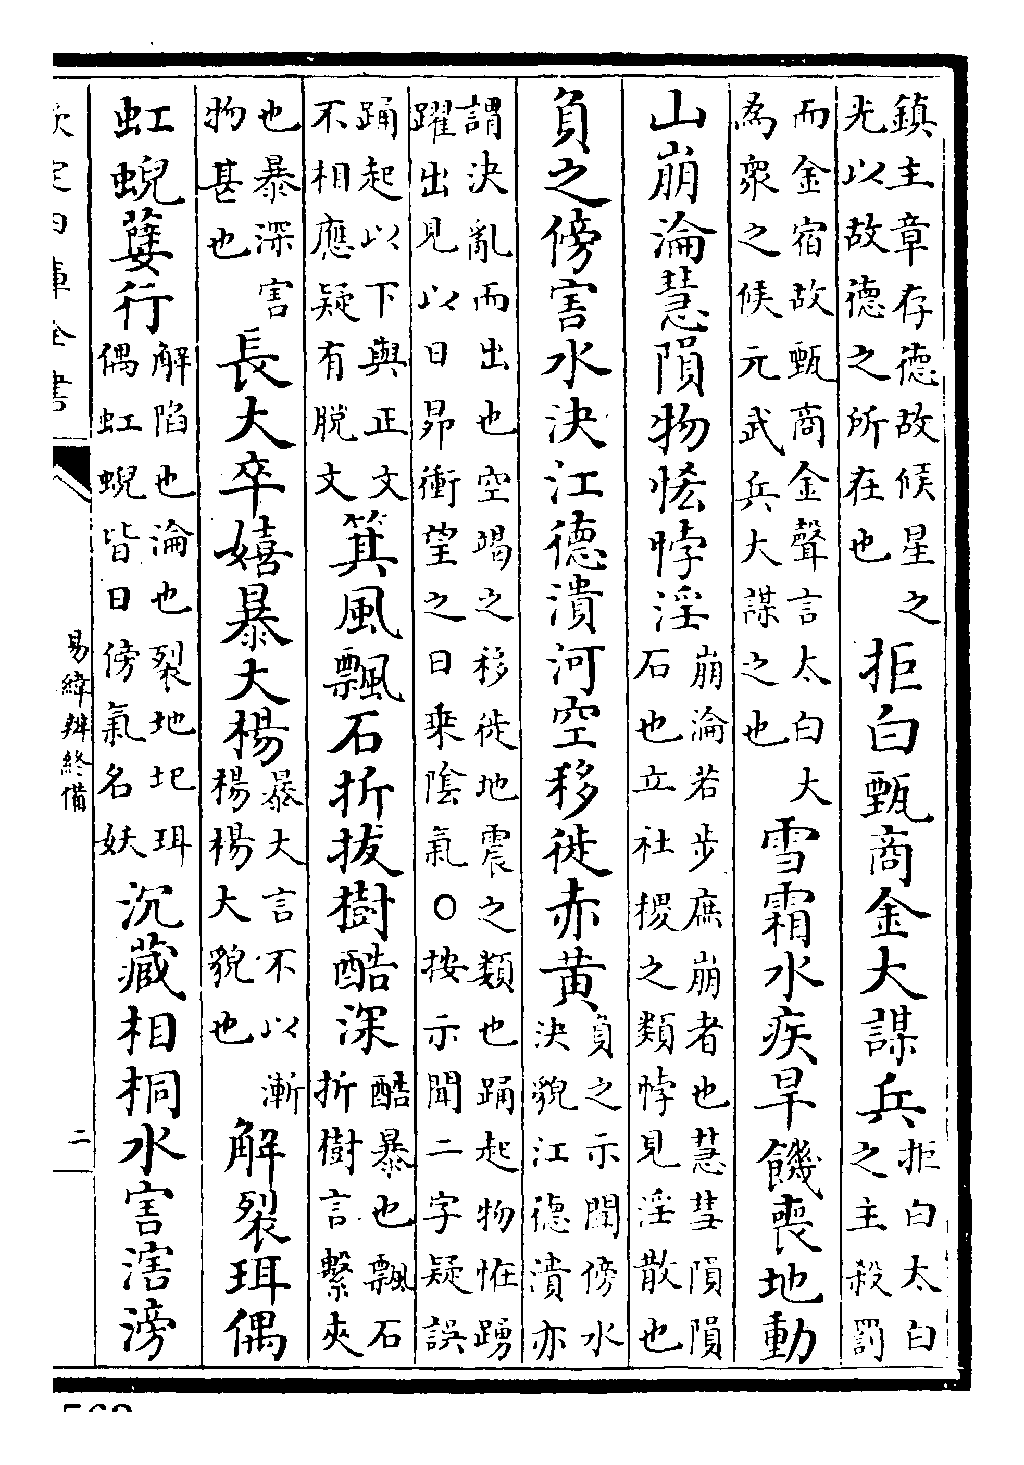 鎮主章存德故候星之
光以故德之所在也
拒白甄商金大謀兵
拒白太白
之主殺罰
而金宿故甄商金聲言太白大
為衆之候元武兵大謀之也
雪霜水疾旱饑喪地動
山崩淪慧隕物恡悖淫
崩淪若步庶崩者也慧彗隕隕
石也立社稷之類悖見淫散也
負之傍害水決江德潰河空移徙赤黃
負之示聞傍水
決貌江德潰亦
謂決亂而出也空竭之移徙地震之類也踊起物恠踴
躍出見以日昴衝望之日乘陰氣○按示聞二字疑誤
踊起以下與正文
不相應疑有脱文
箕風飄石折拔樹酷深
酷暴也飄石
折樹言繋夾
也暴深害
物甚也
長大卒嬉暴大楊
暴大言不以漸
楊楊大貌也
解裂珥偶
虹蜺孽行
解陷也淪也裂地圯珥
偶虹蜺皆日傍氣名妖
沉藏相桐水害滂
欽定四庫全書
易緯辨終備
二